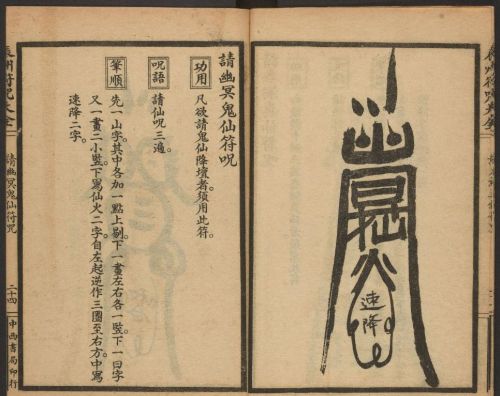 請幽冥鬼仙符呪
功用
凡欲請鬼仙降壇者。須用此符。
呪語
請仙呪三遍
筆順
先一山字。其中各加一點上剔。下一畫左右各一豎。下一曰字
又一畫二小豎。下寫仙火二字。自左起逆作三圈至右方。中寫
速降二字。
請幽冥鬼仙符呪
二十四
中西書局印行
速降